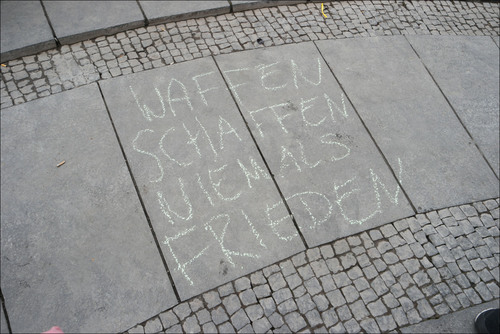 WAFFEN
SCHAFFEN
NIEMALS
FRIEDEN